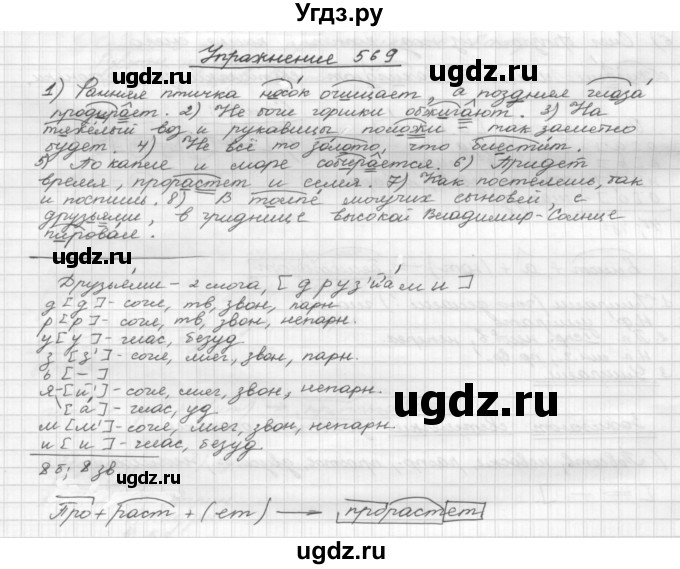 Угдз.ру
Упражнение 569
1) Ранняя птичка носок очищает, а поздняя глаза
продирает. 2) Не боги горшки обжигают. 3) На
тяжёлый воз и рукавицы положи – так заметно
будет. 4) Не всё то золото, что блестит.
5) По капле и море собирается. 6) Придет
время, прорастет и семя. 7) Как постелешь, так
и поспишь. 8) В толпе могучих сыновей, с
друзьями, в гриднице высокой Владимир-Солнце
пировал.
Друзьями – 2 слога, [друз'йáм'и]
д [д] - согл, тв, звон, парн.
р [р] - согл, тв, звон, непарн.
у [у] - глас, безуд
з [з'] - согл, мяг, звон, парн.
ь [–]
я [й'] - согл, мяг, звон, непарн.
[á] - глас, уд
м [м'] - согл, мяг, звон, непарн.
и [и] - глас, безуд
8 б; 8 зв
Про + раст + (ет) → прорастет
ugdz.ru
ugdz.ru
ugdz.ru
ugdz.ru
ugdz.ru
ugdz.ru
ugdz.ru
ugdz.ru